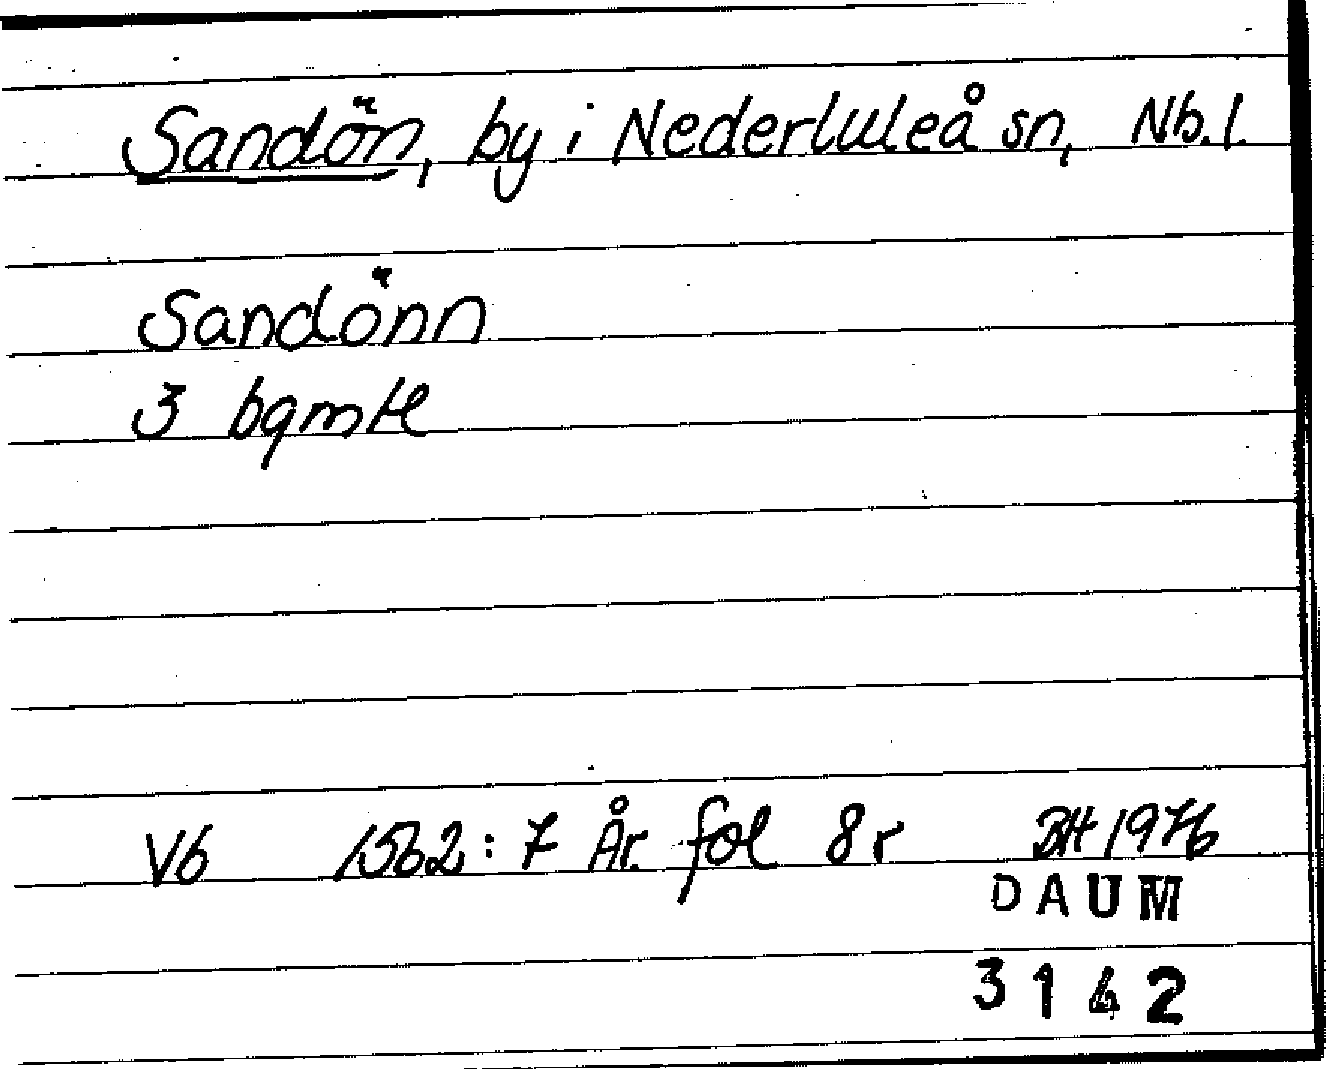 Sandön, by i Nederluleå sn, Nb.l.
Sandönn
3 bqmtl
Vb 1562:7 År. fol 8r BH 1976
DAUM
3142